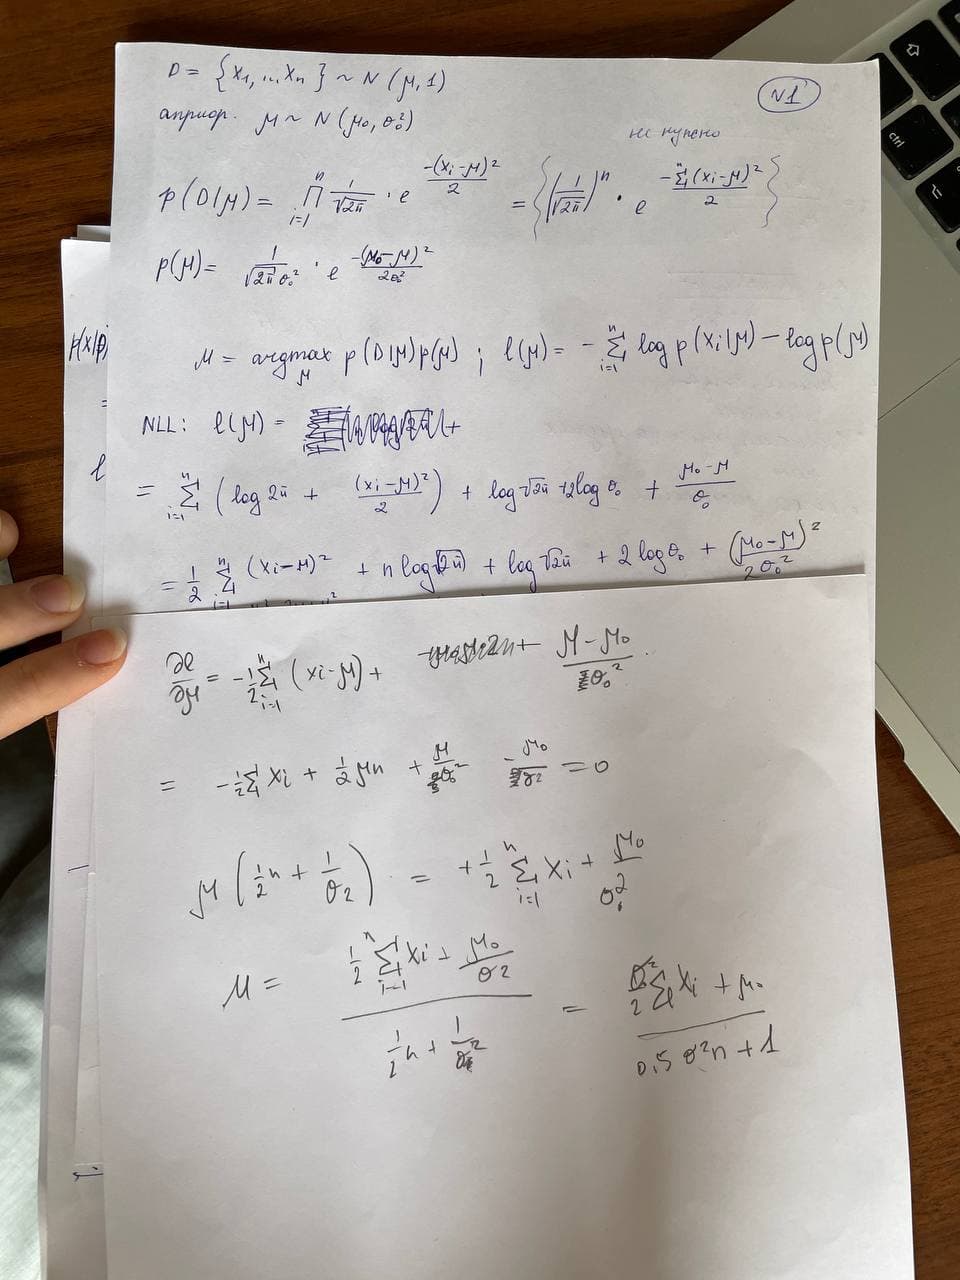 D = {x₁, ... xₙ} ~ N(μ, 1)
№1
априор. μ ~ N(μ₀, σ₀²)
не нужно
p(D|μ) = ∏ᵢ₌₁ⁿ 1/√2π · e^(-(xᵢ-μ)²/2) = {(1/√2π)ⁿ · e^(-Σ₁ⁿ(xᵢ-μ)²/2)}
p(μ) = 1/√2π σ₀² · e^(-(μ₀-μ)²/2σ₀²)
p(x|
μ = argmax_μ p(D|μ)p(μ) ; l(μ) = - Σᵢ₌₁ⁿ log p(xᵢ|μ) - log p(μ)
=
NLL: l(μ) =
l
= Σᵢ₌₁ⁿ (log 2π + (xᵢ-μ)²/2) + log √2π + 2 log σ₀ + (μ₀-μ)/σ₀
= 1/2 Σᵢ₌₁ⁿ (xᵢ-μ)² + n log √2π + log √2π + 2 log σ₀ + (μ₀-μ)²/2σ₀²
∂l/∂μ = -1/2 Σᵢ₌₁ⁿ (xᵢ-μ) + (μ-μ₀)/σ₀²
= -1/2 Σ xᵢ + 1/2 μn + μ/σ₀² - μ₀/σ² = 0
μ (1/2 n + 1/σ²) = +1/2 Σᵢ₌₁ⁿ xᵢ + μ₀/σ₀²
μ = (1/2 Σᵢ₌₁ⁿ xᵢ + μ₀/σ²)/(1/2 n + 1/σ²) = (σ²/2 Σ xᵢ + μ₀)/(0.5 σ²n + 1)
ctrl
fn